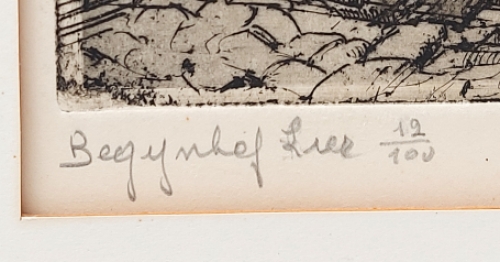 Begijnhof Lier 12/100